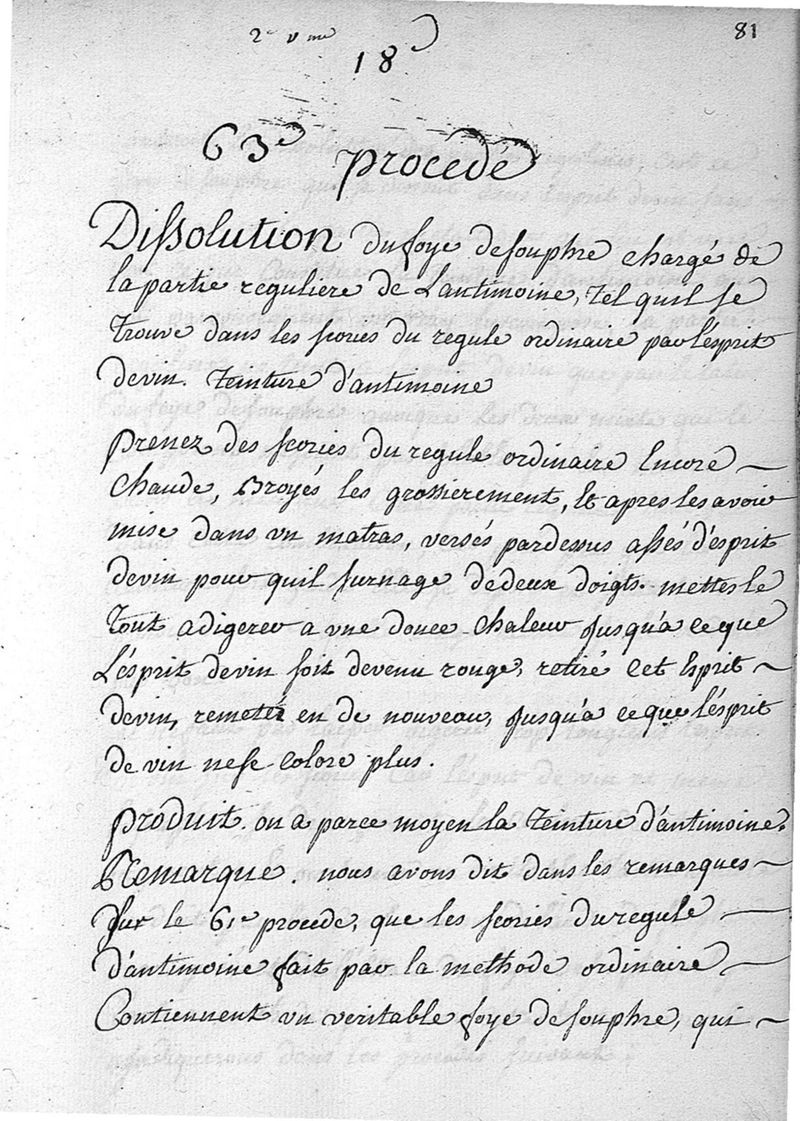 81
18e
63e procedé
Dissolution du foye de souphre chargé de
la partie reguliere de L'antimoine, tel quil se
trouve dans les scories du regule ordinaire par l'ésprit
de vin. teinture d'antimoine
prenez des scories du regule ordinaire Encore
chaude, Broyés les grossierement, Et apres les avoir
mise dans un matras, versés pardessus assés d'ésprit
de vin pour quil surnage de deux doigts. mettes le
tout a digerer a une douce chaleur jusqu'a ce que
L'ésprit de vin soit devenu rouge, retiré Cet Esprit
de vin, remetté en de nouveau, jusqu'a ce que l'ésprit
de vin ne se colore plus.
produit. on a par ce moyen la teinture d'antimoine.
Remarque. nous avons dit dans les remarques
sur le 61e procede, que les scories du regule
d'antimoine fait par la methode ordinaire
Contiennent un veritable foye de souphre, qui